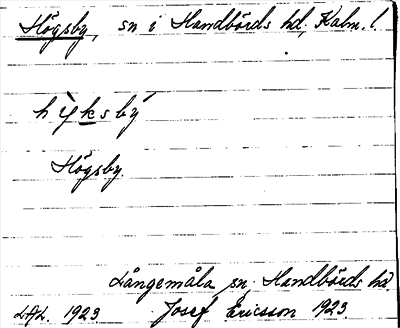 Högsby, sn i Handbörds hd, Kalm. l.
hỳksbý
Högsby.
Långemåla sn, Handbörds hd.
1923 Josef Ericsson 1923